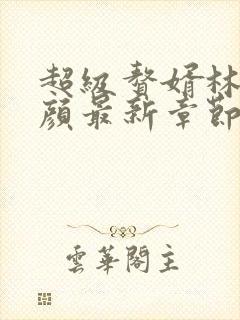 超級贅婿林
顏最新章節
雲華閣主